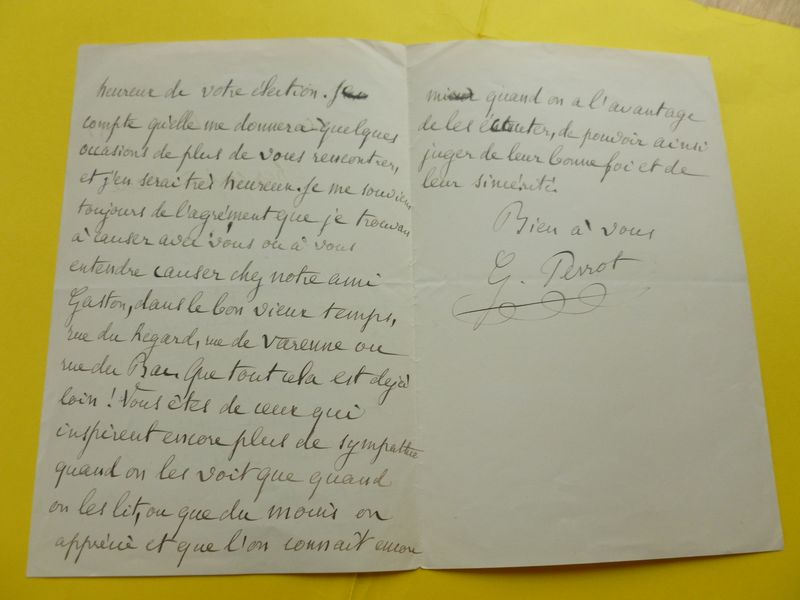 heureux de votre élection. Je
compte qu'elle me donnera quelques
occasions de plus de vous rencontrer,
et j'en serai très heureux. Je me souviens
toujours de l'agrément que je trouvais
à causer avec vous ou à vous
entendre causer chez notre ami
Gaston, dans le bon vieux temps,
rue du Regard, rue de Varenne ou
rue du Bac. Que tout cela est déjà
loin ! Vous êtes de ceux qui
inspirent encore plus de sympathie
quand on les voit que quand
on les lit, ou que du moins on
apprécie et que l'on connaît encore
mieux quand on a l'avantage
de les écouter, de pouvoir ainsi
juger de leur bonne foi et de
leur sincérité.
Bien à vous
G. Perrot